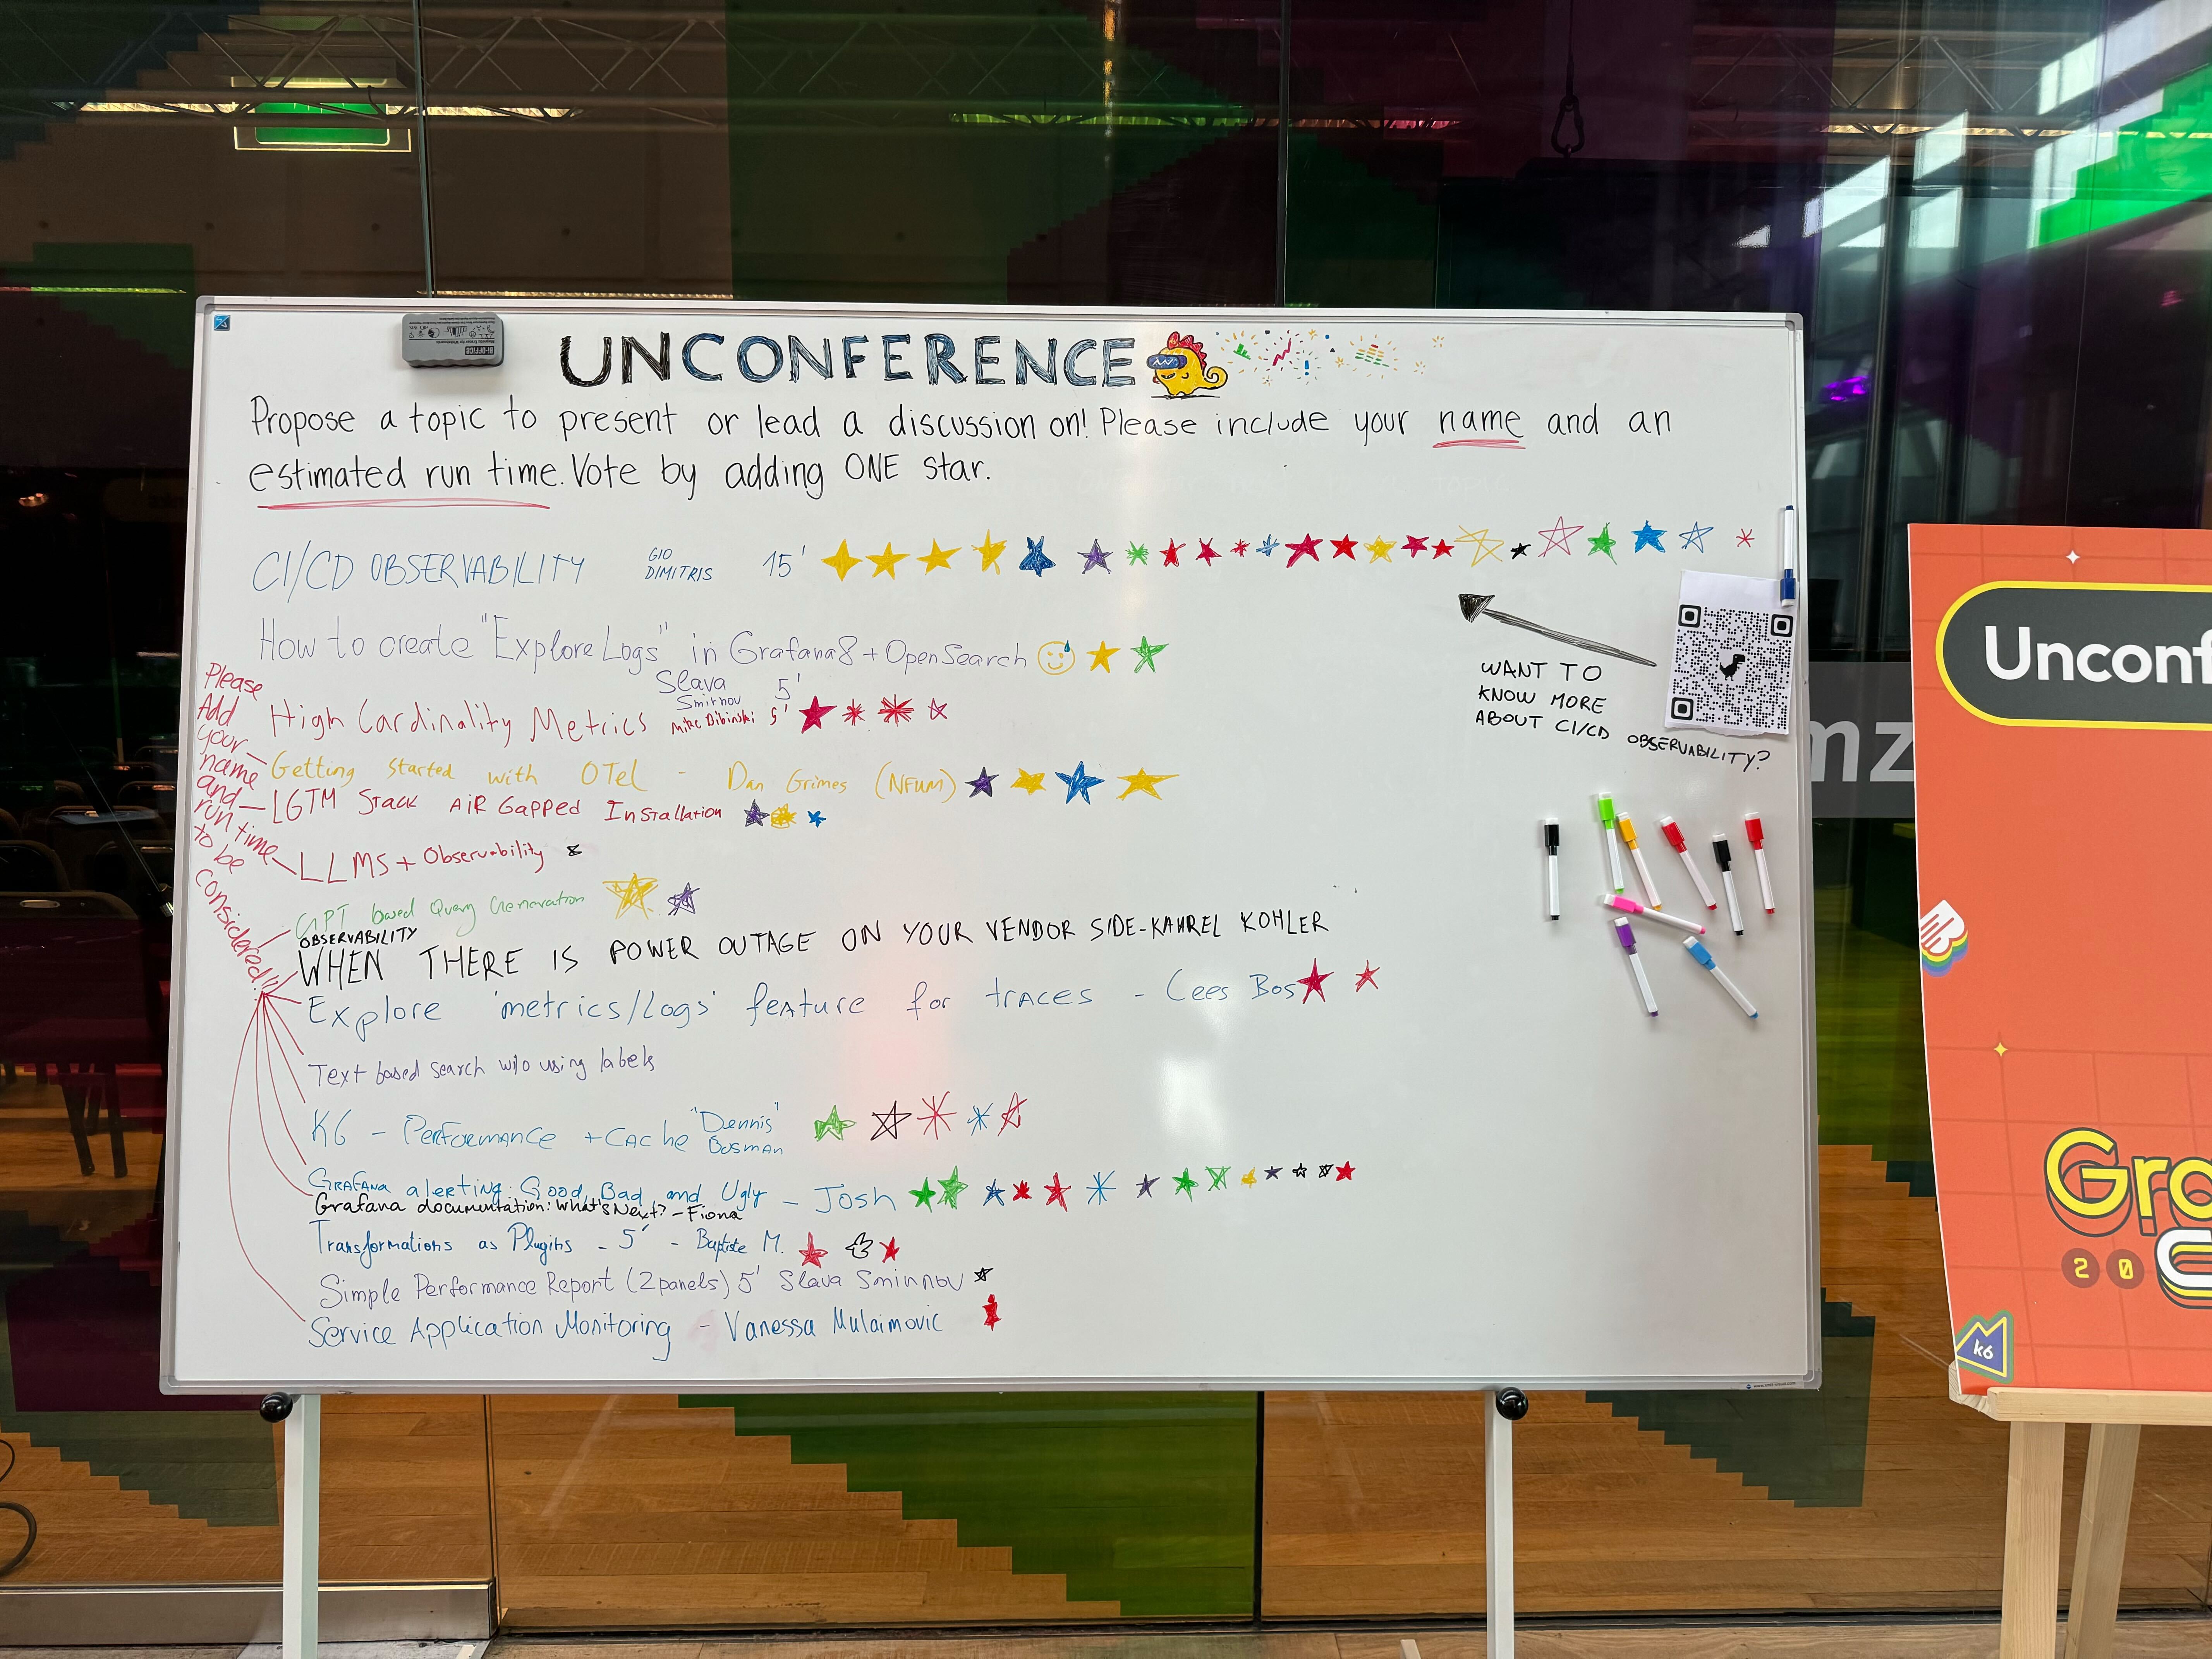 UNCONFERENCE
Propose a topic to present or lead a discussion on! Please include your name and an
estimated run time. Vote by adding ONE star.
CI/CD OBSERVABILITY GIO DIMITRIS 15'
How to create "Explore Logs" in Grafana8 + OpenSearch
Slava Smirnov 5'
High Cardinality Metrics Mike Bibinski 5'
Getting Started with OTel - Dan Grimes (NFUM)
LGTM Stack AiR Gapped Installation
LLMS + Observability
GPT based Query Generation
OBSERVABILITY
WHEN THERE IS POWER OUTAGE ON YOUR VENDOR SIDE - KAUREL KOHLER
Explore 'metrics/Logs' feature for traces - Cees Bos
Text based search w/o using labels
K6 - Performance + Cache "Dennis" Bosman
Grafana alerting: Good, Bad, and Ugly - Josh
Grafana documentation: What's Next? - Fiona
Transformations as Plugins - 5' - Baptiste M.
Simple Performance Report (2panels) 5' Slava Smirnov
Service Application Monitoring - Vanessa Mulaimovic
Please
Add
your
name
and
run time
to be
considered!!!
WANT TO
KNOW MORE
ABOUT CI/CD OBSERVABILITY?
BI-OFFICE
mz
Unconf
Gra
20
k6